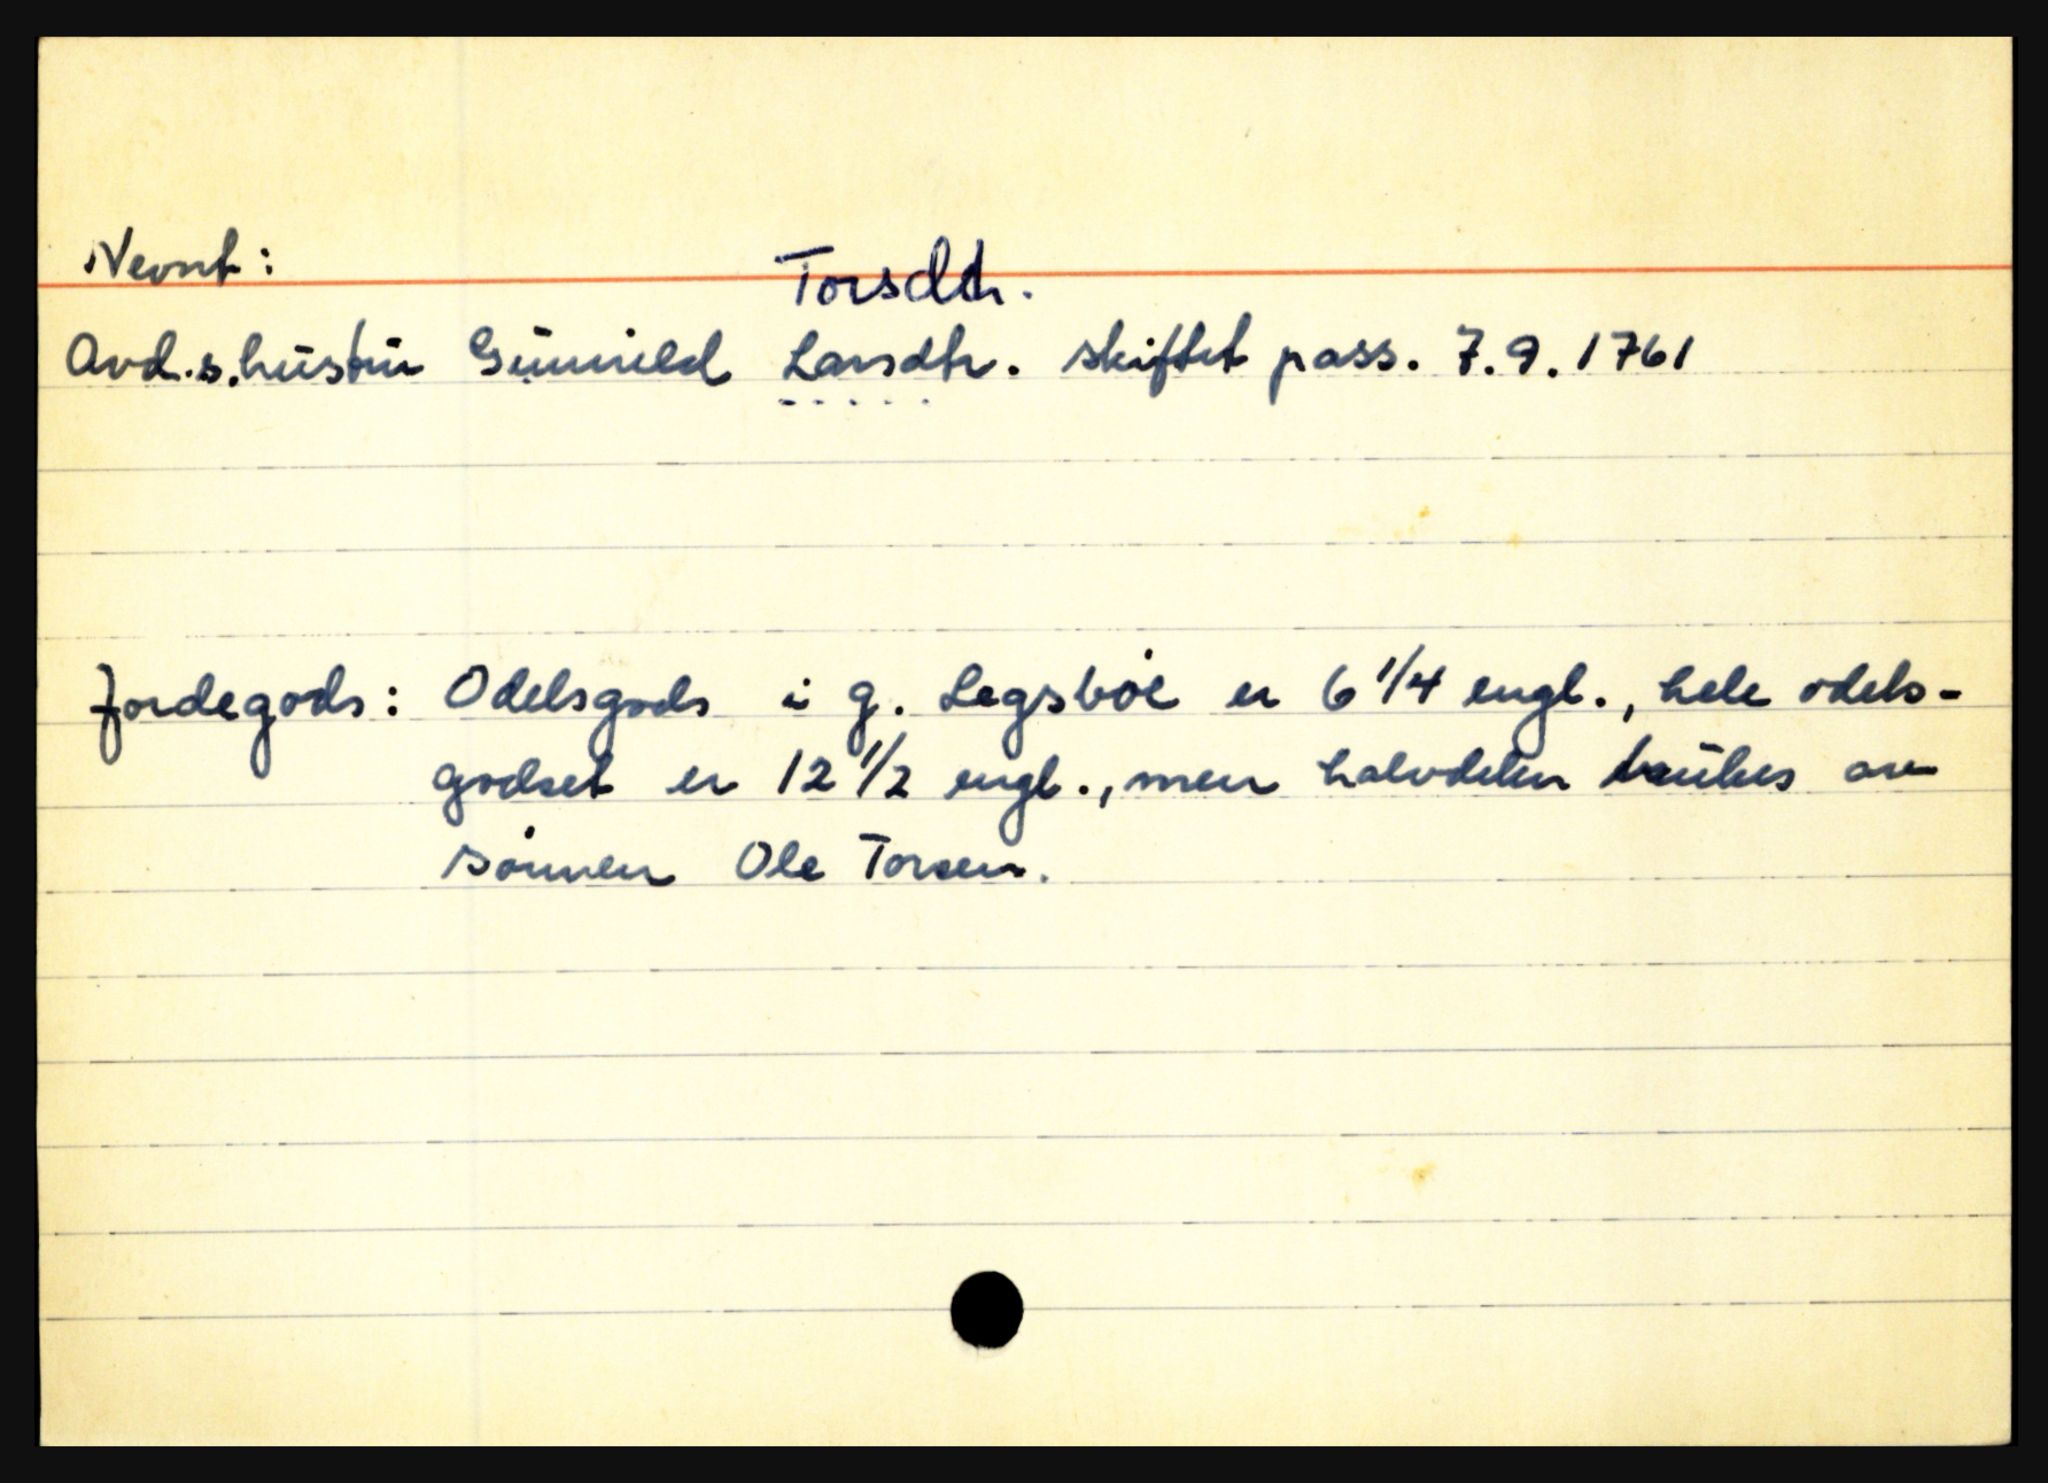 Nevnt:
Torsdtr.
Avd.s.hustru Gunnild Larsdtr. skiftet pass. 7.9.1761
Jordegods: Odelsgods i g. Legsböe er 6 1/4 engl., hele odels-
godset er 12 1/2 engl., men halvdelen brukes av
sönnen Ole Torsen.